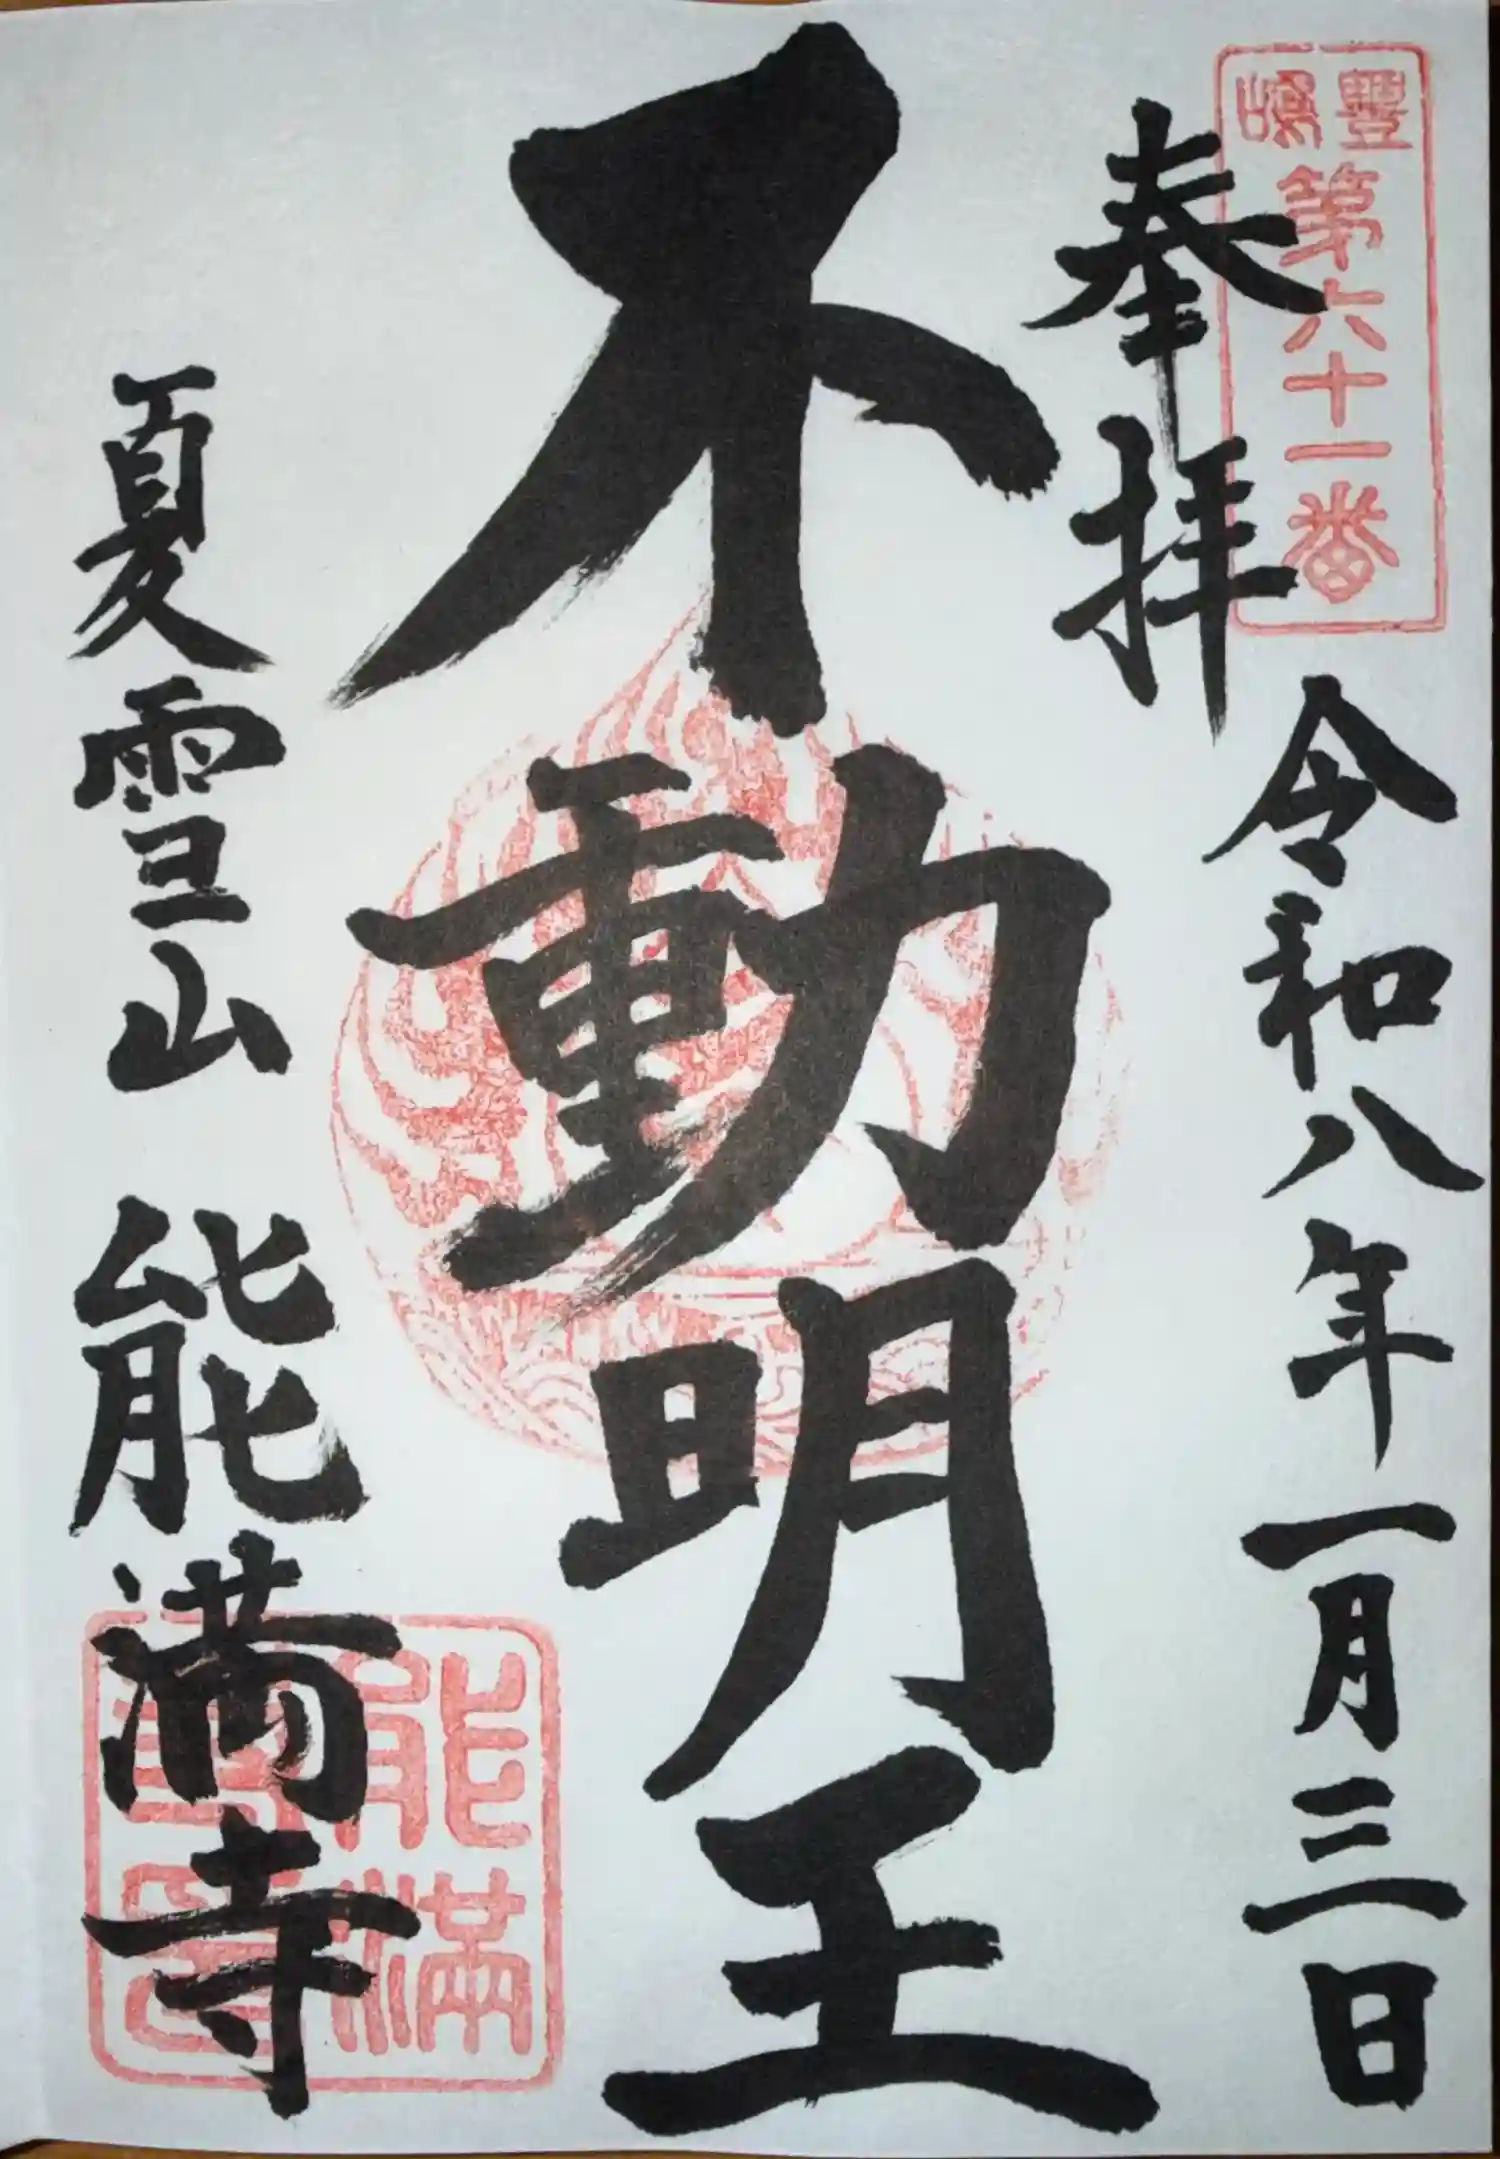 豐嶋
第六十一番
奉拝
令和八年一月三日
不動明王
夏雪山 能満寺
能滿